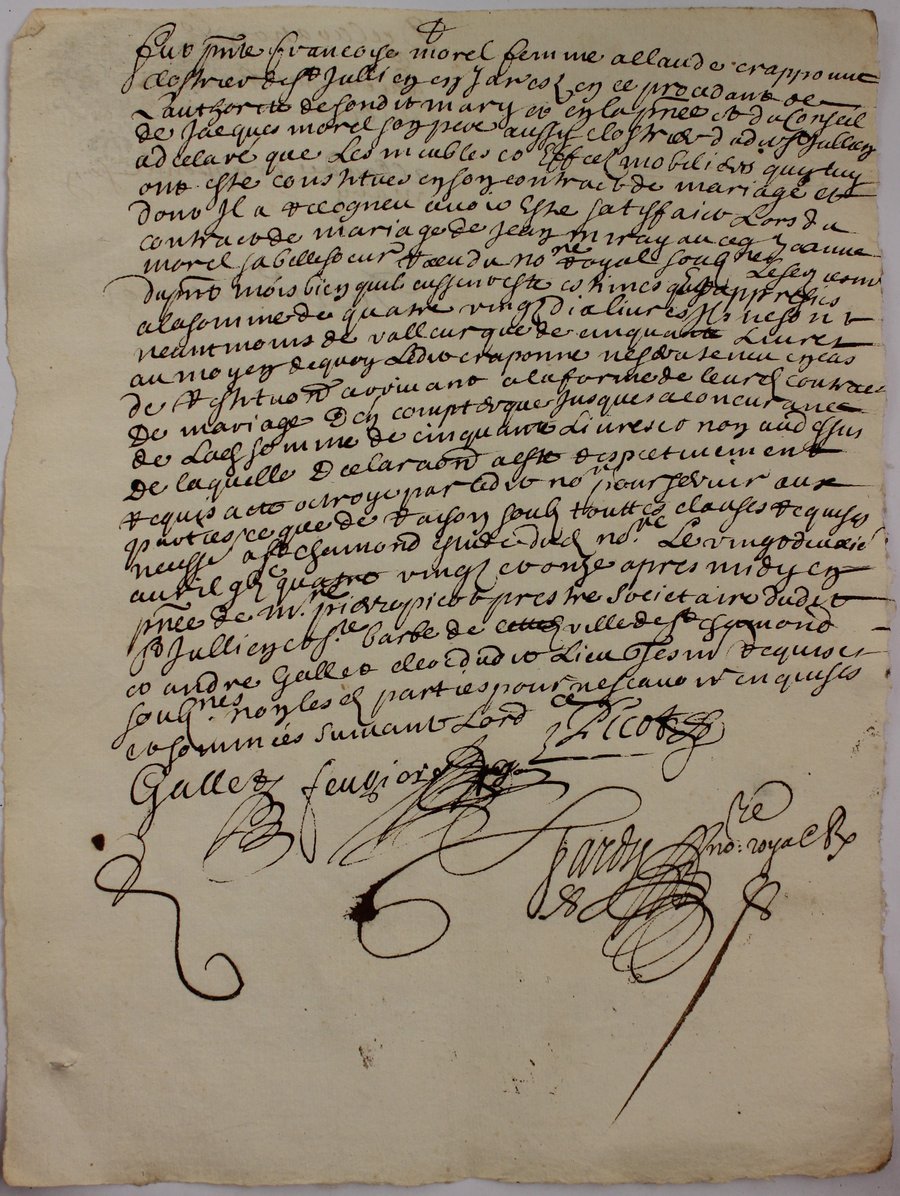 Fut pnte francoise morel femme a llaude crapponne
clostrier de st Jullien en Jarest en ce procedant de
Lauthorite de son dit mary et en la pnce et du Conseil
de Jacques morel son pere aussy clostrier dudit st Jullien
a declaré que Les meubles et Effectz mobiliers quy luy
ont esté constitues en son contract de mariage et
dont Il a recogneu avoir Esté satisffaict Lors du
contract de mariage de Jean
morel sa belle soeur receu du nore royal soubzne
du pnt mois bien quils eussent esté estimes
a la somme de quatre vingt dix livres Ilz ne sont
neantmoins de valleur que de cinquante Livres
au moyen de quoy Ledit craponne ne sera tenu en cas
de restituon arrivant a la forme de leurd contract
de mariage den compter que Jusques a concurance
de Lad somme de cinquante Livres et non au dessus
de laquelle declaraon a esté respectivement
requis acte octroyé par Ledit nore pour servir aux
parties ce que de raison soubz touttes clauses requises
a st chamond estude dud nore Le vingt deuxie
avril gbc quatre vingt et onze apres midy en
pnce de mre pierre picot prestre societaire dudit
st Jullien et ste barbe de ville de st chamond
et andre Gallet clerc dudit Lieu tesm requis et
soubznes non lesd parties pour ne scavoir enquises
et sommées suivant Lordce
Picot
Gallet
hardy nore royal